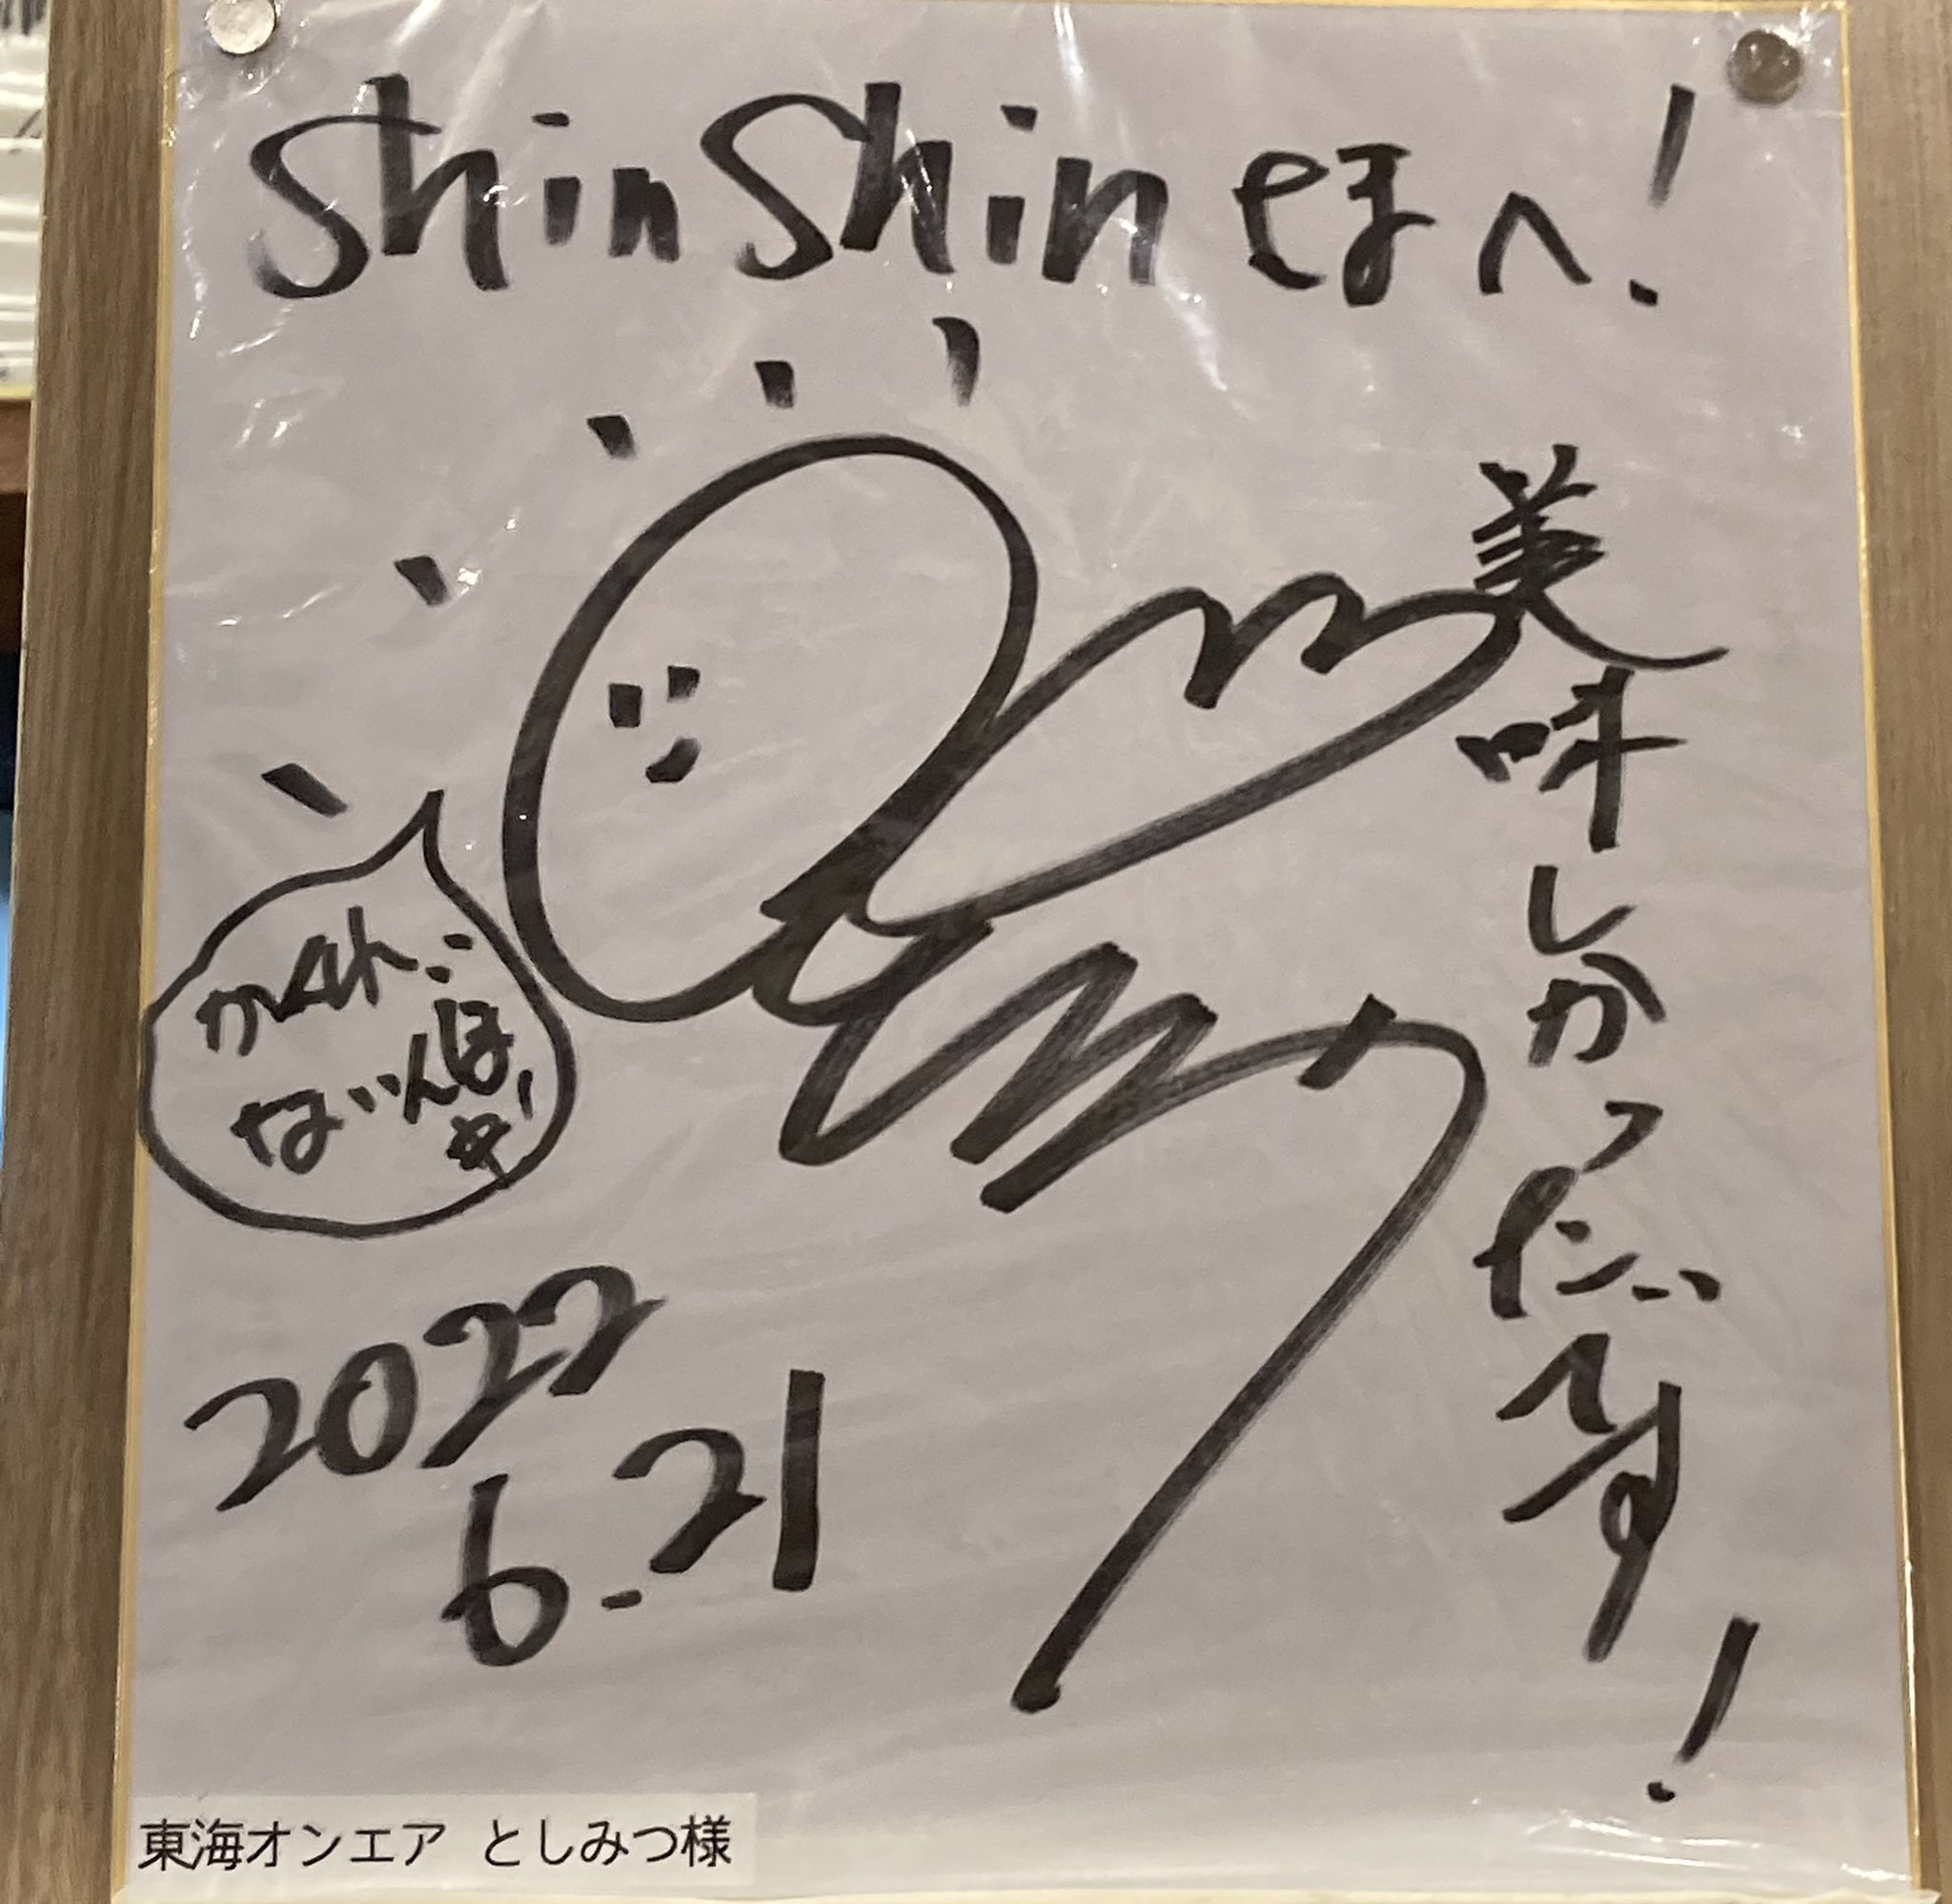 ShinShin さまへ!
美味しかったです!
2022
6.21
東海オンエア としみつ様